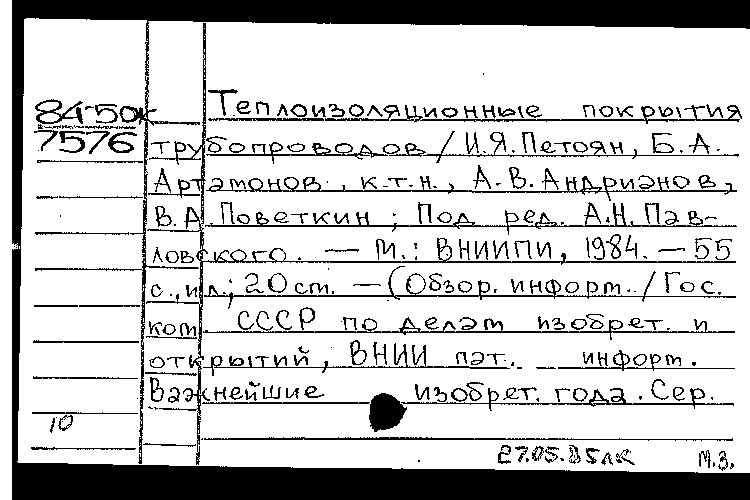 84-50к
7576
Теплоизоляционные покрытия
трубопроводов / И.Я.Петоян, Б.А.
Артамонов, к.т.н., А.В.Андрианов,
В.А.Поветкин ; Под ред. А.Н.Пав-
ловского. — М.: ВНИИПИ, 1984. — 55
с., ил.; 20 cm. — (Обзор. информ. / Гос.
ком. СССР по делам изобрет. и
открытий, ВНИИ пат. информ.
Важнейшие изобрет. года. Сер.
10
27.05.85лк М.З.